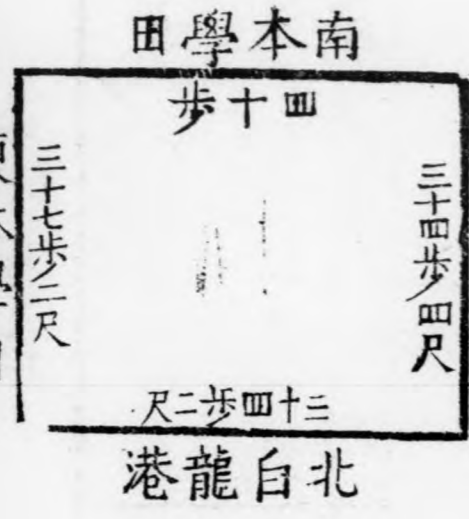 南本學田
四十步
三十四步四尺
三十七步二尺
三十四步二尺
北白龍港